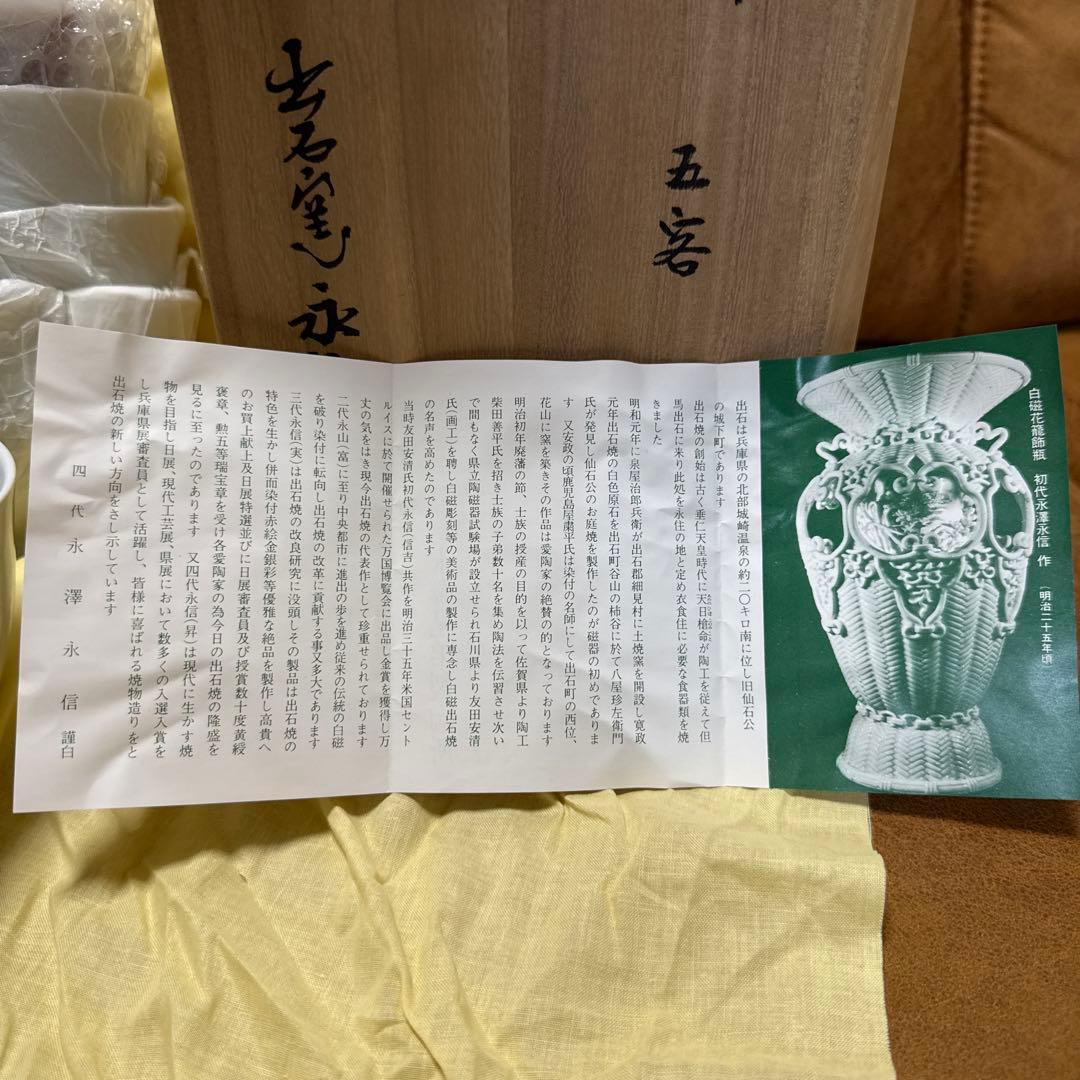 五客
出石窯永
白磁花籠飾瓶　初代永澤永信　作　（明治二十五年頃
出石は兵庫県の北部城崎温泉の約二〇キロ南に位し旧仙石公
の城下町であります
出石焼の創始は古く垂仁天皇時代に天日槍命が陶工を従えて但
馬出石に来り此処を永住の地と定め衣食住に必要な食器類を焼
きました
明和元年に泉屋治郎兵衛が出石郡細見村に土焼窯を開設し寛政
元年出石焼の白色原石を出石町谷山の柿谷に於て八屋珍左衛門
氏が発見し仙石公のお庭焼を製作したのが磁器の初めでありま
す　又安政の頃鹿児島屋粟平氏は染付の名師にして出石町の西位、
花山に窯を築きその作品は愛陶家の絶賛の的となっております
明治初年廃藩の節、士族の授産の目的を以って佐賀県より陶工
柴田善平氏を招き士族の子弟数十名を集め陶法を伝習させ次い
で間もなく県立陶磁器試験場が設立せられ石川県より友田安清
氏（画工）を聘し白磁彫刻等の美術品の製作に専念し白磁出石焼
の名声を高めたのであります
当時友田安清氏初代永信（信吉）共作を明治三十五年米国セント
ルイスに於て開催せられた万国博覧会に出品し金賞を獲得し万
丈の気をはき現今出石焼の代表作として珍重せられております
二代永山（富）に至り中央都市に進出の歩を進め従来の伝統の白磁
を破り染付に転向し出石焼の改革に貢献する事又多大であります
三代永信（実）は出石焼の改良研究に没頭しその製品は出石焼の
特色を生かし併而染付赤絵金銀彩等優雅な絶品を製作し高貴へ
のお買上献上及日展特選並びに日展審査員及び授賞数十度黄綬
褒章、勲五等瑞宝章を受け各愛陶家の為今日の出石焼の隆盛を
見るに至ったのであります　又四代永信（昇）は現代に生かす焼
物を目指し日展、現代工芸展、県展において数多くの入選入賞を
し兵庫県展審査員として活躍し、皆様に喜ばれる焼物造りをと
出石焼の新しい方向をさし示しています
四代永澤永信　謹白